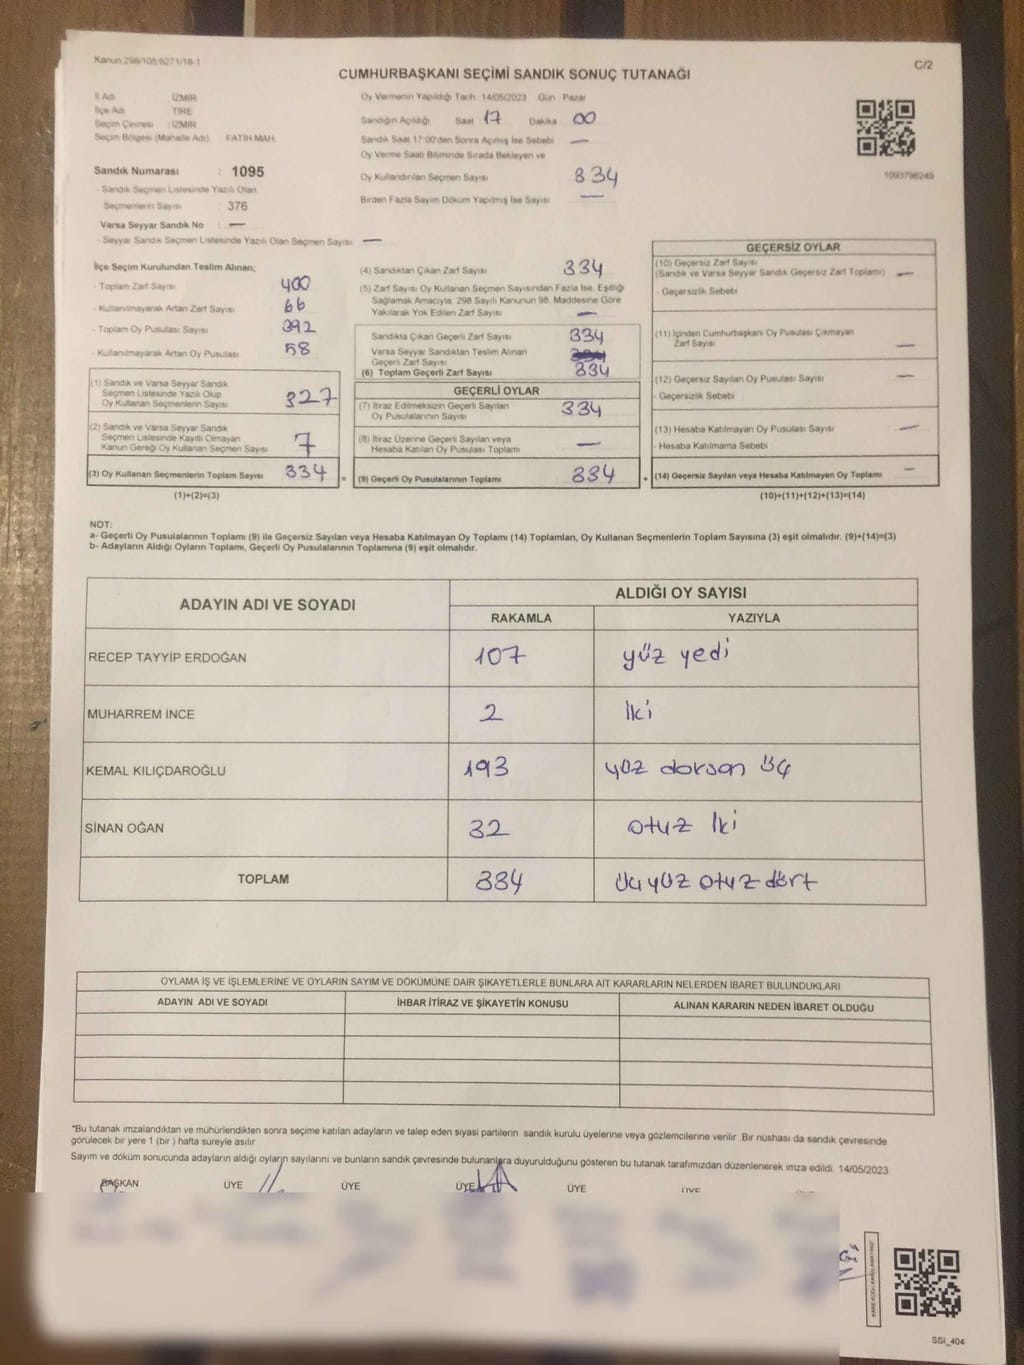 Kanun 298/105;6271/18-1
C/2
CUMHURBAŞKANI SEÇİMİ SANDIK SONUÇ TUTANAĞI
İl Adı : İZMİR
İlçe Adı : TİRE
Seçim Çevresi : İZMİR
Seçim Bölgesi (Mahalle Adı) : FATİH MAH.
Sandık Numarası : 1095
- Sandık Seçmen Listesinde Yazılı Olan
Seçmenlerin Sayısı : 376
Varsa Seyyar Sandık No : —
- Seyyar Sandık Seçmen Listesinde Yazılı Olan Seçmen Sayısı : —
Oy Vermenin Yapıldığı Tarih : 14/05/2023 Gün : Pazar
Sandığın Açıldığı Saat 17 Dakika 00
Sandık Saat 17:00'den Sonra Açılmış İse Sebebi —
Oy Verme Saati Bitiminde Sırada Bekleyen ve
Oy Kullandırılan Seçmen Sayısı 334
Birden Fazla Sayım Döküm Yapılmış İse Sayısı —
1093796249
İlçe Seçim Kurulundan Teslim Alınan;
- Toplam Zarf Sayısı 400
- Kullanılmayarak Artan Zarf Sayısı 66
- Toplam Oy Pusulası Sayısı 392
- Kullanılmayarak Artan Oy Pusulası 58
(1) Sandık ve Varsa Seyyar Sandık
Seçmen Listesinde Yazılı Olup
Oy Kullanan Seçmenlerin Sayısı 327
(2) Sandık ve Varsa Seyyar Sandık
Seçmen Listesinde Kayıtlı Olmayan
Kanun Gereği Oy Kullanan Seçmen Sayısı 7
(3) Oy Kullanan Seçmenlerin Toplam Sayısı 334
(1)+(2)=(3)
=
(4) Sandıktan Çıkan Zarf Sayısı 334
(5) Zarf Sayısı Oy Kullanan Seçmen Sayısından Fazla İse, Eşitliği
Sağlamak Amacıyla, 298 Sayılı Kanunun 98. Maddesine Göre
Yakılarak Yok Edilen Zarf Sayısı —
Sandıkta Çıkan Geçerli Zarf Sayısı 334
Varsa Seyyar Sandıktan Teslim Alınan
Geçerli Zarf Sayısı
(6) Toplam Geçerli Zarf Sayısı 334
GEÇERLİ OYLAR
(7) İtiraz Edilmeksizin Geçerli Sayılan
Oy Pusulalarının Sayısı 334
(8) İtiraz Üzerine Geçerli Sayılan veya
Hesaba Katılan Oy Pusulası Toplamı —
(9) Geçerli Oy Pusulalarının Toplamı 334
+
GEÇERSİZ OYLAR
(10) Geçersiz Zarf Sayısı
(Sandık ve Varsa Seyyar Sandık Geçersiz Zarf Toplamı) —
- Geçersizlik Sebebi
(11) İçinden Cumhurbaşkanı Oy Pusulası Çıkmayan
Zarf Sayısı —
(12) Geçersiz Sayılan Oy Pusulası Sayısı —
- Geçersizlik Sebebi
(13) Hesaba Katılmayan Oy Pusulası Sayısı —
- Hesaba Katılmama Sebebi
(14) Geçersiz Sayılan veya Hesaba Katılmayan Oy Toplamı —
(10)+(11)+(12)+(13)=(14)
NOT:
a- Geçerli Oy Pusulalarının Toplamı (9) ile Geçersiz Sayılan veya Hesaba Katılmayan Oy Toplamı (14) Toplamları, Oy Kullanan Seçmenlerin Toplam Sayısına (3) eşit olmalıdır. (9)+(14)=(3)
b- Adayların Aldığı Oyların Toplamı, Geçerli Oy Pusulalarının Toplamına (9) eşit olmalıdır.
ADAYIN ADI VE SOYADI ALDIĞI OY SAYISI
RAKAMLA YAZIYLA
RECEP TAYYİP ERDOĞAN 107 yüz yedi
MUHARREM İNCE 2 iki
KEMAL KILIÇDAROĞLU 193 yüz dorsan üç
SİNAN OĞAN 32 otuz iki
TOPLAM 334 üçyüz otuz dört
OYLAMA İŞ VE İŞLEMLERİNE VE OYLARIN SAYIM VE DÖKÜMÜNE DAİR ŞİKAYETLERLE BUNLARA AİT KARARLARIN NELERDEN İBARET BULUNDUKLARI
ADAYIN ADI VE SOYADI İHBAR İTİRAZ VE ŞİKAYETİN KONUSU ALINAN KARARIN NEDEN İBARET OLDUĞU
*Bu tutanak imzalandıktan ve mühürlendikten sonra seçime katılan adayların ve talep eden siyasi partilerin sandık kurulu üyelerine veya gözlemcilerine verilir. Bir nüshası da sandık çevresinde
görülecek bir yere 1 (bir ) hafta süreyle asılır.
Sayım ve döküm sonucunda adayların aldığı oyların sayılarını ve bunların sandık çevresinde bulunanlara duyurulduğunu gösteren bu tutanak tarafımızdan düzenlenerek imza edildi. 14/05/2023
BAŞKAN ÜYE ÜYE ÜYE ÜYE ÜYE
SSI_404